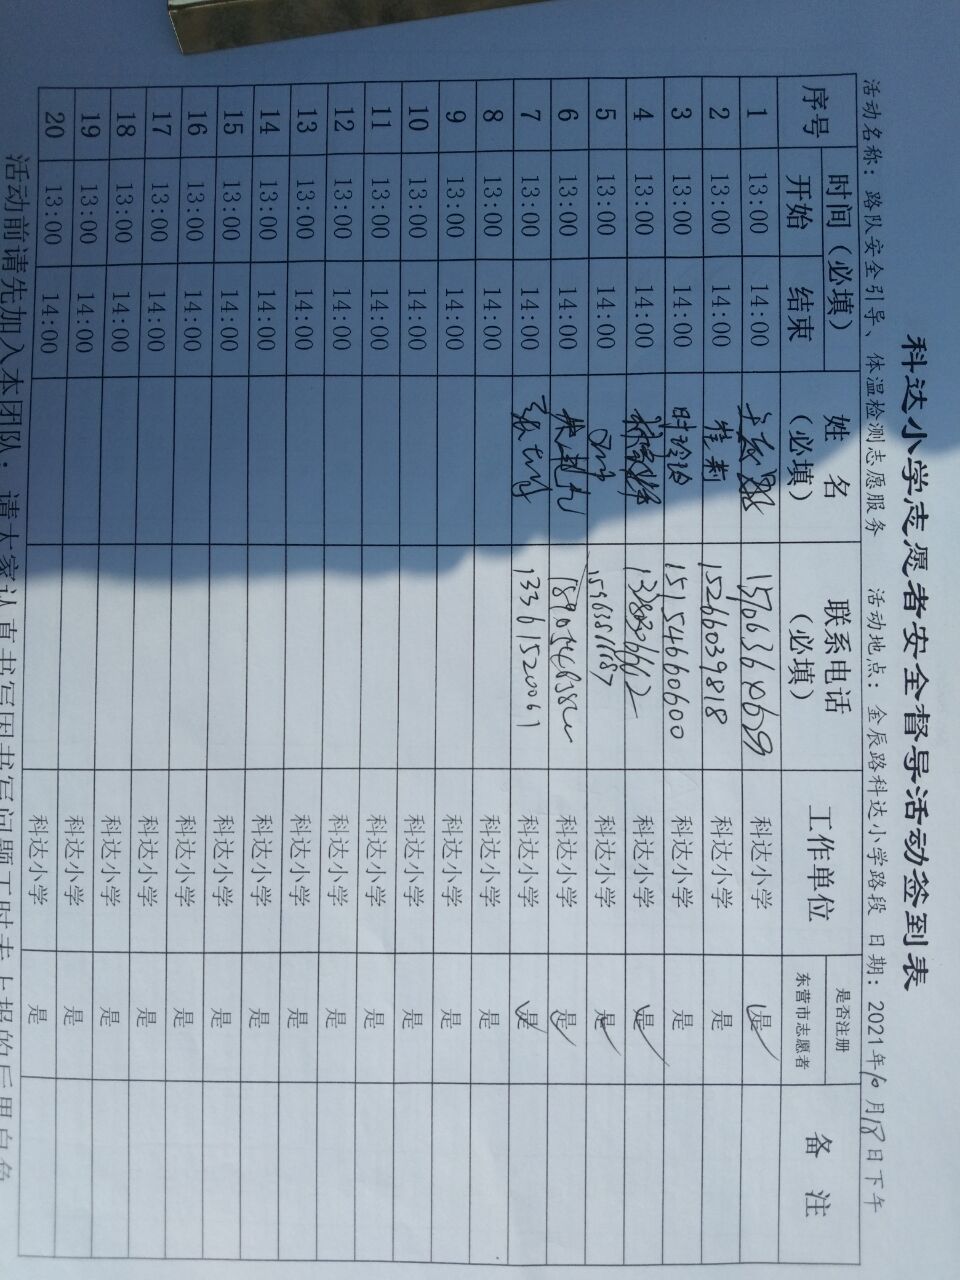 科达小学志愿者安全督导活动签到表
活动名称：路队安全引导、体温检测志愿服务 活动地点：金辰路科达小学路段 日期：2021年10月18日下午
序号 时间（必填） 姓名（必填） 联系电话（必填） 工作单位 是否注册东营市志愿者 备注
开始 结束
1 13:00 14:00 科达小学 是
2 13:00 14:00 崔莉 15266039818 科达小学 是
3 13:00 14:00 时玲玲 15154660600 科达小学 是
4 13:00 14:00 科达小学 是
5 13:00 14:00 科达小学 是
6 13:00 14:00 科达小学 是
7 13:00 14:00 13361520061 科达小学 是
8 13:00 14:00 科达小学 是
9 13:00 14:00 科达小学 是
10 13:00 14:00 科达小学 是
11 13:00 14:00 科达小学 是
12 13:00 14:00 科达小学 是
13 13:00 14:00 科达小学 是
14 13:00 14:00 科达小学 是
15 13:00 14:00 科达小学 是
16 13:00 14:00 科达小学 是
17 13:00 14:00 科达小学 是
18 13:00 14:00 科达小学 是
19 13:00 14:00 科达小学 是
20 13:00 14:00 科达小学 是
活动前请先加入本团队；请大家认真书写因书写问题工时未上报的后果自负